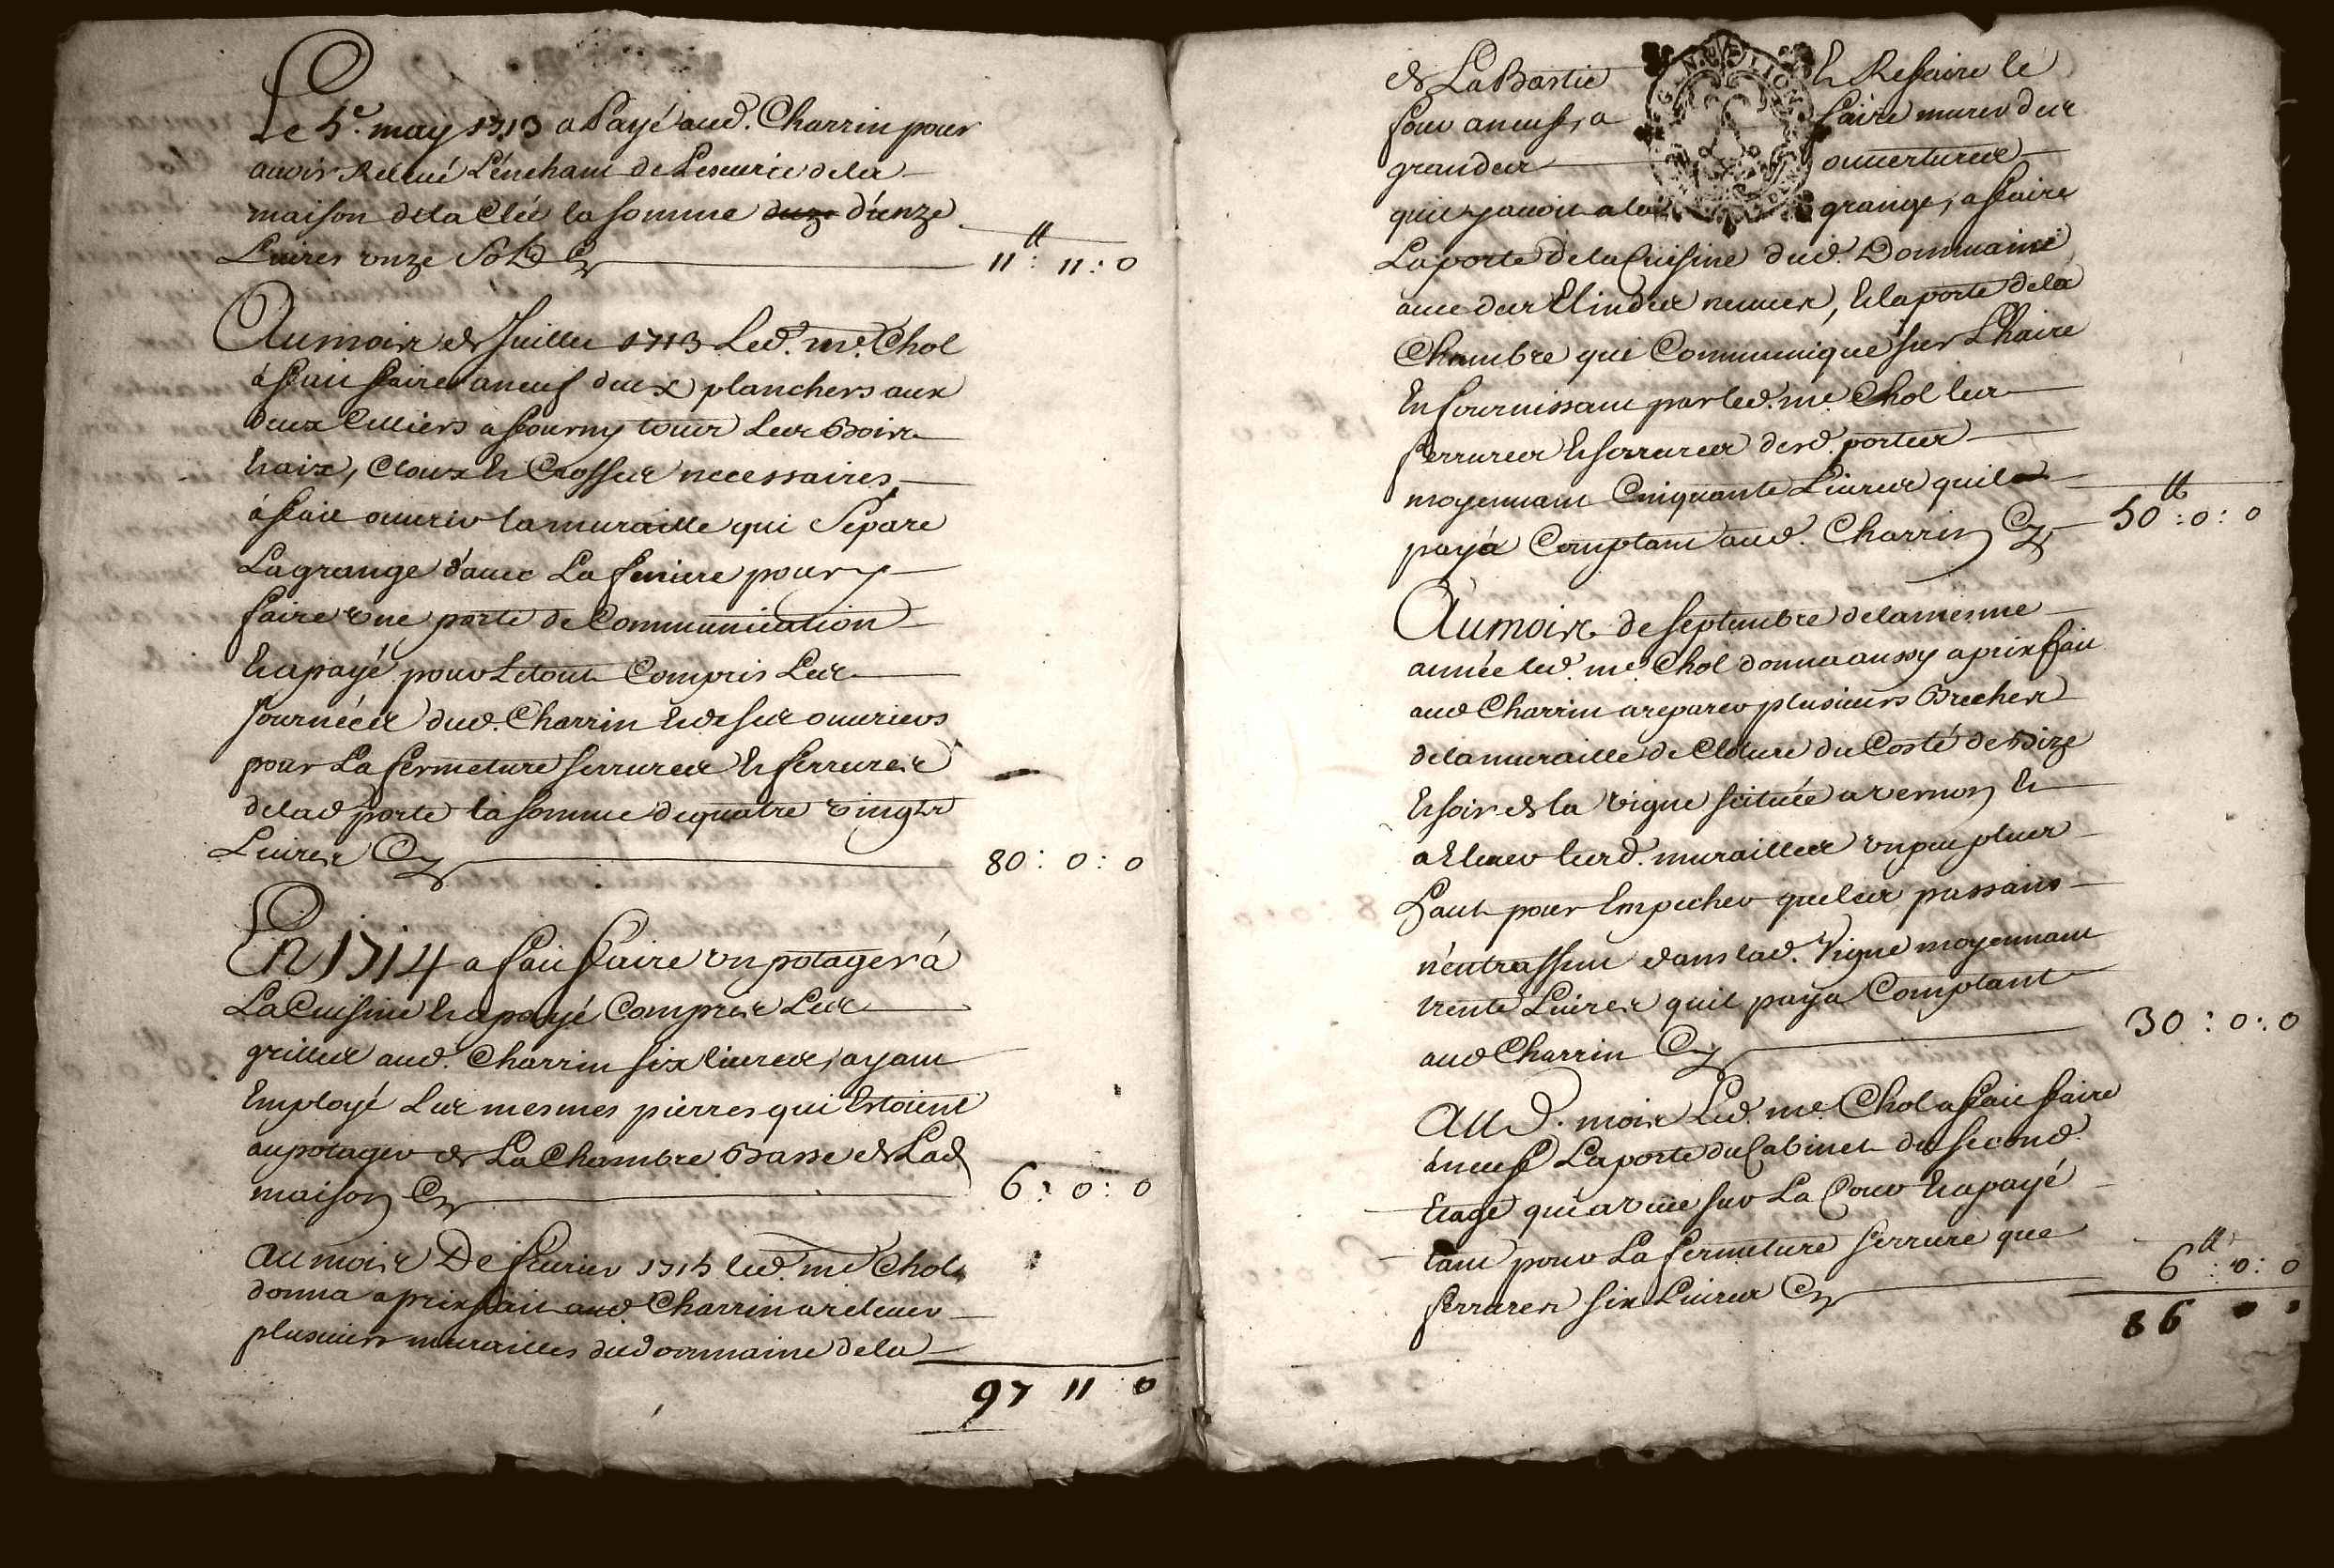 Le 5e. may 1713 a Payé aud. Charrin pour
avoir Relevé L'enchant de Lescurie dela
maison dela Clée la somme duze d'unze
Livres onze Sold Cy
11tt: 11: 0
Aumois de Juillet 1713 Led. me. Chol
a fait faire aneuf deux planchers aux
deux Celliers a fourny tous Les Bois
traix, Cloux et Crosses necessaires
a fait ouvrir la muraille qui Sépare
La grange d'avec La feniere pour y
faire une porte de Communication
et a payé pour Le tout Compris Les
journées dud. Charrin et de ses ouvriers
pour La fermeture serrures et ferrures
delad porte la somme de quatre vingts
Livres Cy
80: 0: 0
En 1714 a fait faire un potager à
La Cuisine et a payé Compris Les
grilles aud. Charrin six livres, ayant
Employé Les mesmes pierres qui Estoient
au potager de La Chambre Basse de Lad
maison Cy
6: 0: 0
au mois De fevrier 1715 led. me Chol
donna a prix fait aud. Charrin a relever
plusieurs murailles dud domaine dela
97 11 0
de La Bastie et Refaire le
four aneuf, a faire murer des
grandes ouvertures
quil y avoit a la grange, a faire
La porte de la Cuisine dud. Dommaine
avec des Elindes neuves, et la porte dela
Chambre qui Communique sur Lhaire
En fournissant par led. me. Chol les
ferrures et serrures desd. portes
moyennant Cinquante Livres quil a
payà Comptant aud. Charrin Cy
50tt: 0: 0
Aumois de septembre dela mesme
année led. me. Chol donna aussy a prix fait
aud Charrin areparer plusieurs Breches
dela muraille de Cloture du Costé de Bize
et soir de la vigne scituée a vernon et
a Elever lesd. murailles un peu plus
haut pour Empecher que les passans
n'entrassent dans lad. Vigne moyennant
trente Livres quil paya Comptant
aud Charrin Cy
30: 0: 0
Aud. mois Led. me. Chol a fait faire
aneuf La porte du Cabinet du second
Etage qui a vüe sur La Cour et a payé
tant pour La fermeture serrure que
ferrures six Livres Cy
6tt: 0: 0
86 0 0